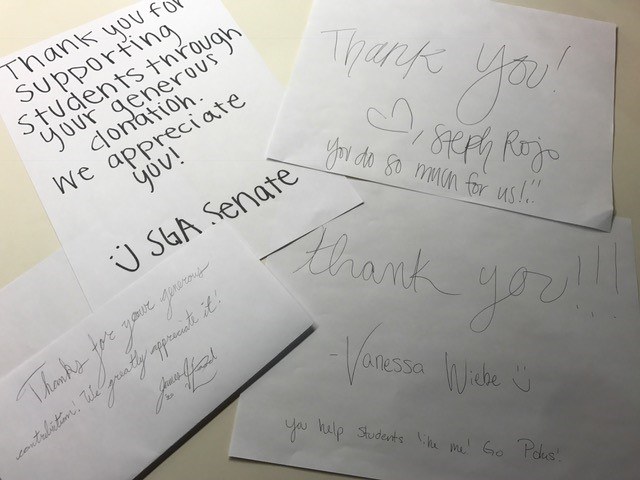 Thank you for
supporting
students through
your generous
donation.
We appreciate
you!
Ü SGA Senate
Thank you!
♡, Steph Rojo
you do so much for us!
Thanks for your generous
contribution! We greatly appreciate it!
James
thank you!!!
-Vanessa Wiebe
you help students like me! Go Pokes!